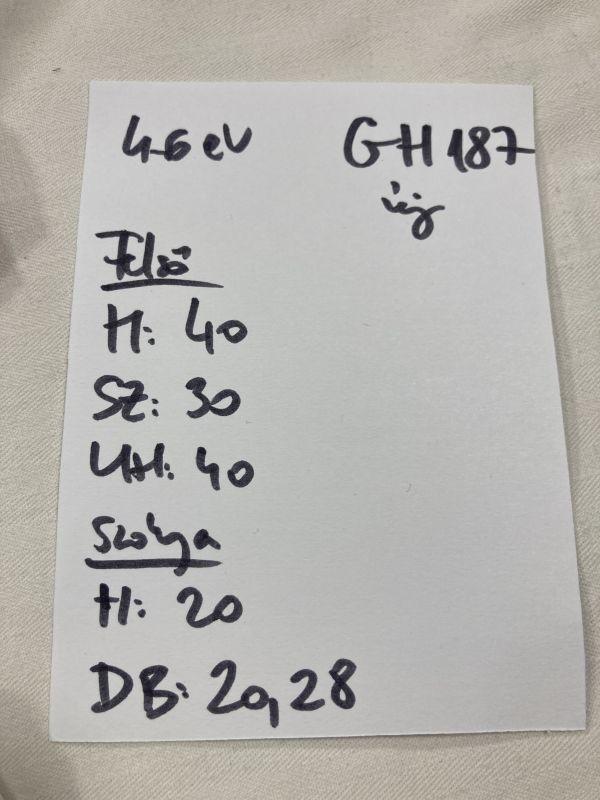 4-6 eV GH 187
Felső
H: 40
SZ: 30
UH: 40
Szoknya
H: 20
DB: 20, 28